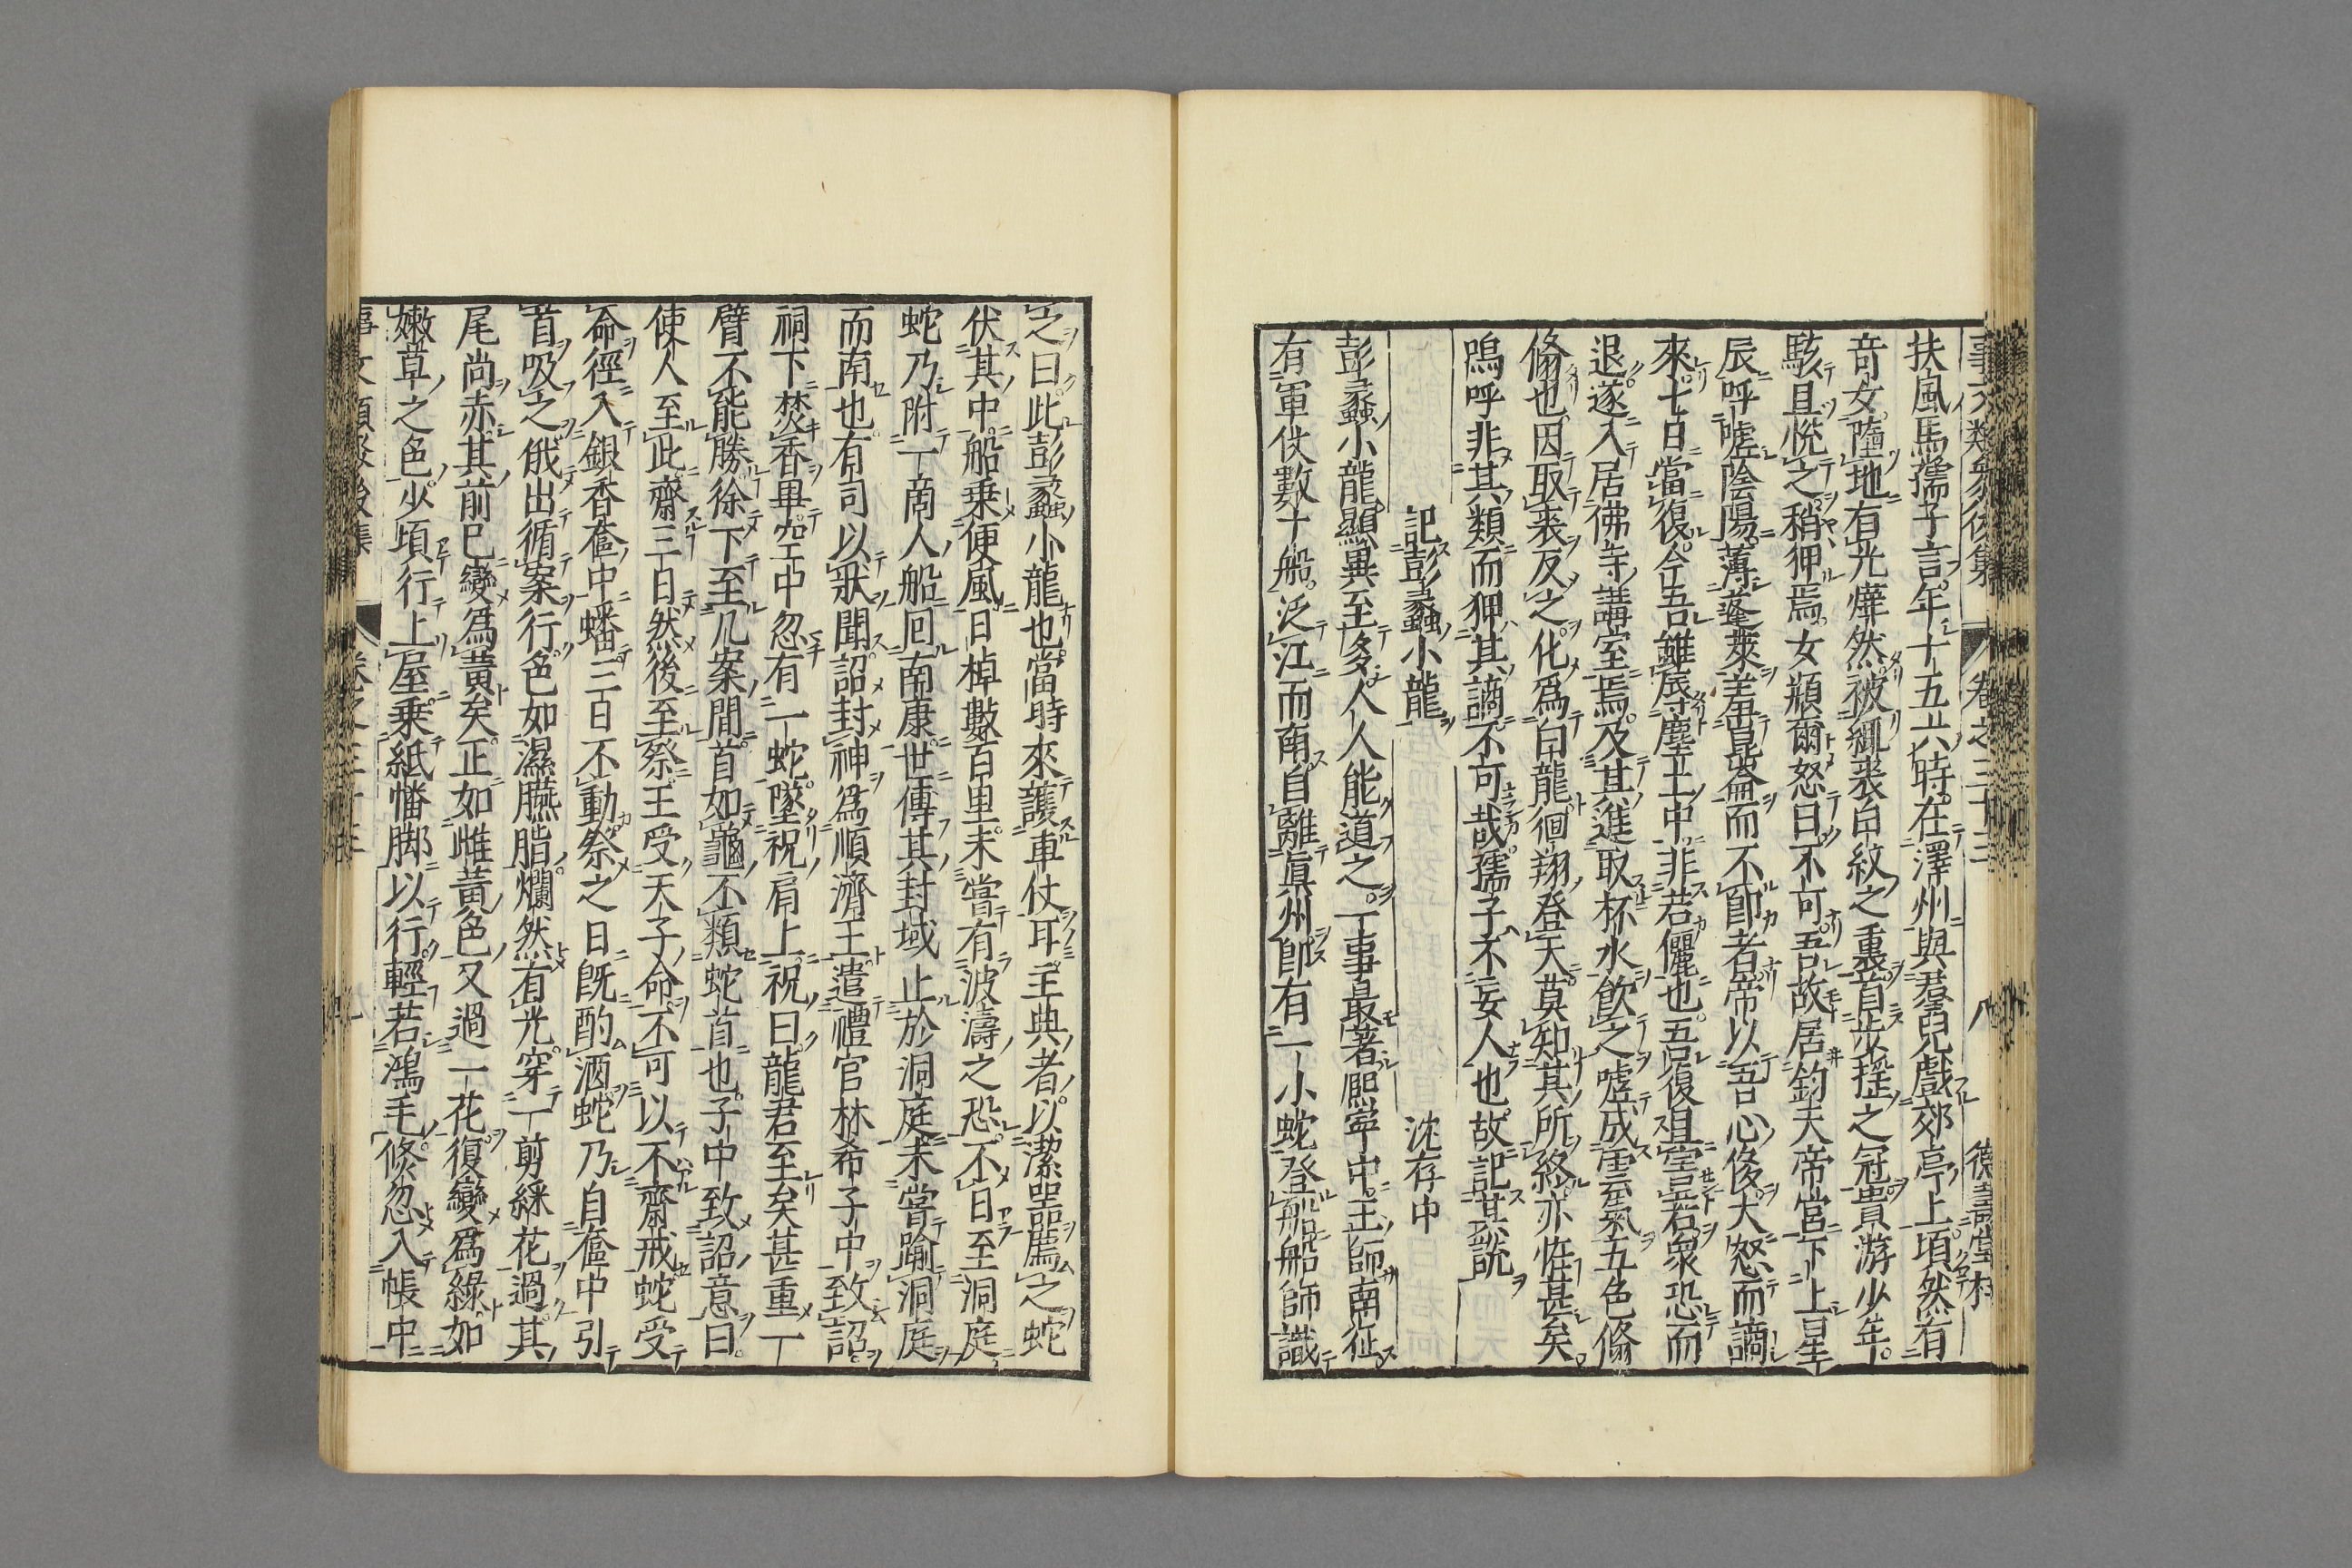 事文類聚後集 卷之三十三 八 德壽堂梓
扶風馬孺子言年十五六時在澤州與羣兒戲郊亭上頃然有
奇女墮地有光燁然被緅裘白紋之裏首步搖之冠貴游少年
駭且悅之稍狎焉女頩爾怒曰不可吾故居鈞天帝宮下上星
辰呼噓陰陽薄蓬萊羞崑崙而不卽者帝以吾心侈大怒而謫
來七日當復今吾雖辱塵土中非若儷也吾復且害若衆恐而
退遂入居佛寺講室焉及其進取杯水飮之噓成雲氣五色翛
翛也因取裘反之化爲白龍徊翔登天莫知其所終亦恠甚矣
嗚呼非其類而狎其謫不可哉孺子不妄人也故記其說
記彭蠡小龍 沈存中
彭蠡小龍顯異至多人人能道之一事最著熈寧中王師南征
有軍仗數十船泛江而南自離眞州卽有一小蛇登船船師識
之曰此彭蠡小龍也當時來護車仗耳主典者以潔器薦之蛇
伏其中船乗便風日棹數百里未嘗有波濤之恐不日至洞庭
蛇乃附一商人船回南康世傳其封域止於洞庭未嘗踰洞庭
而南也有司以狀聞詔封神爲順濟王遣禮官林希子中致詔
祠下焚香畢空中忽有一蛇墜祝肩上祝曰龍君至矣甚重一
臂不能勝徐下至几案間首如龜不類蛇首也子中致詔意曰
使人至此齋三日然後至祭王受天子命不可以不齋戒蛇受
命徑入銀香奩中蟠三日不動祭之日旣酌酒蛇乃自奩中引
首吸之俄出循案行色如濕臙脂爛然有光穿一剪綵花過其
尾尚赤其前已變爲黃矣正如雌黃色又過一花復變爲綠如
嫩草之色少頃行上屋乗紙幡脚以行輕若鴻毛倐忽入帳中
事文類聚後集 卷之三十三